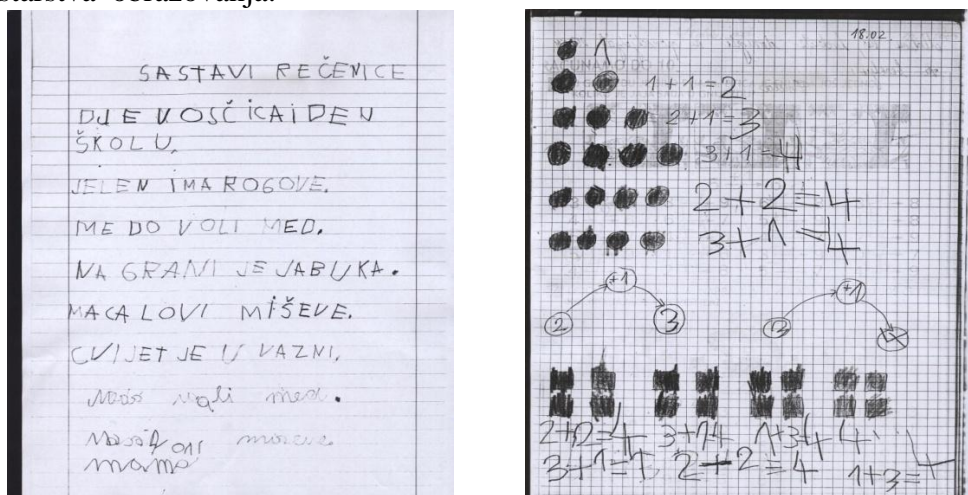 SASTAVI REČENICE
DJEVOSČICA IDE U
ŠKOLU.
JELEN IMA ROGOVE.
ME DO VOLI MED.
NA GRANI JE JABUKA.
MACA LOVI MIŠEVE.
CVIJET JE U VAZNI.
med.
mama
18.02
1
1+1=2
2+1=3
3+1=4
2+2=4
3+1=4
+1
2 3
+1
3
2+2=4 3+1=4 1+3=4
2+2=4 1+3=4